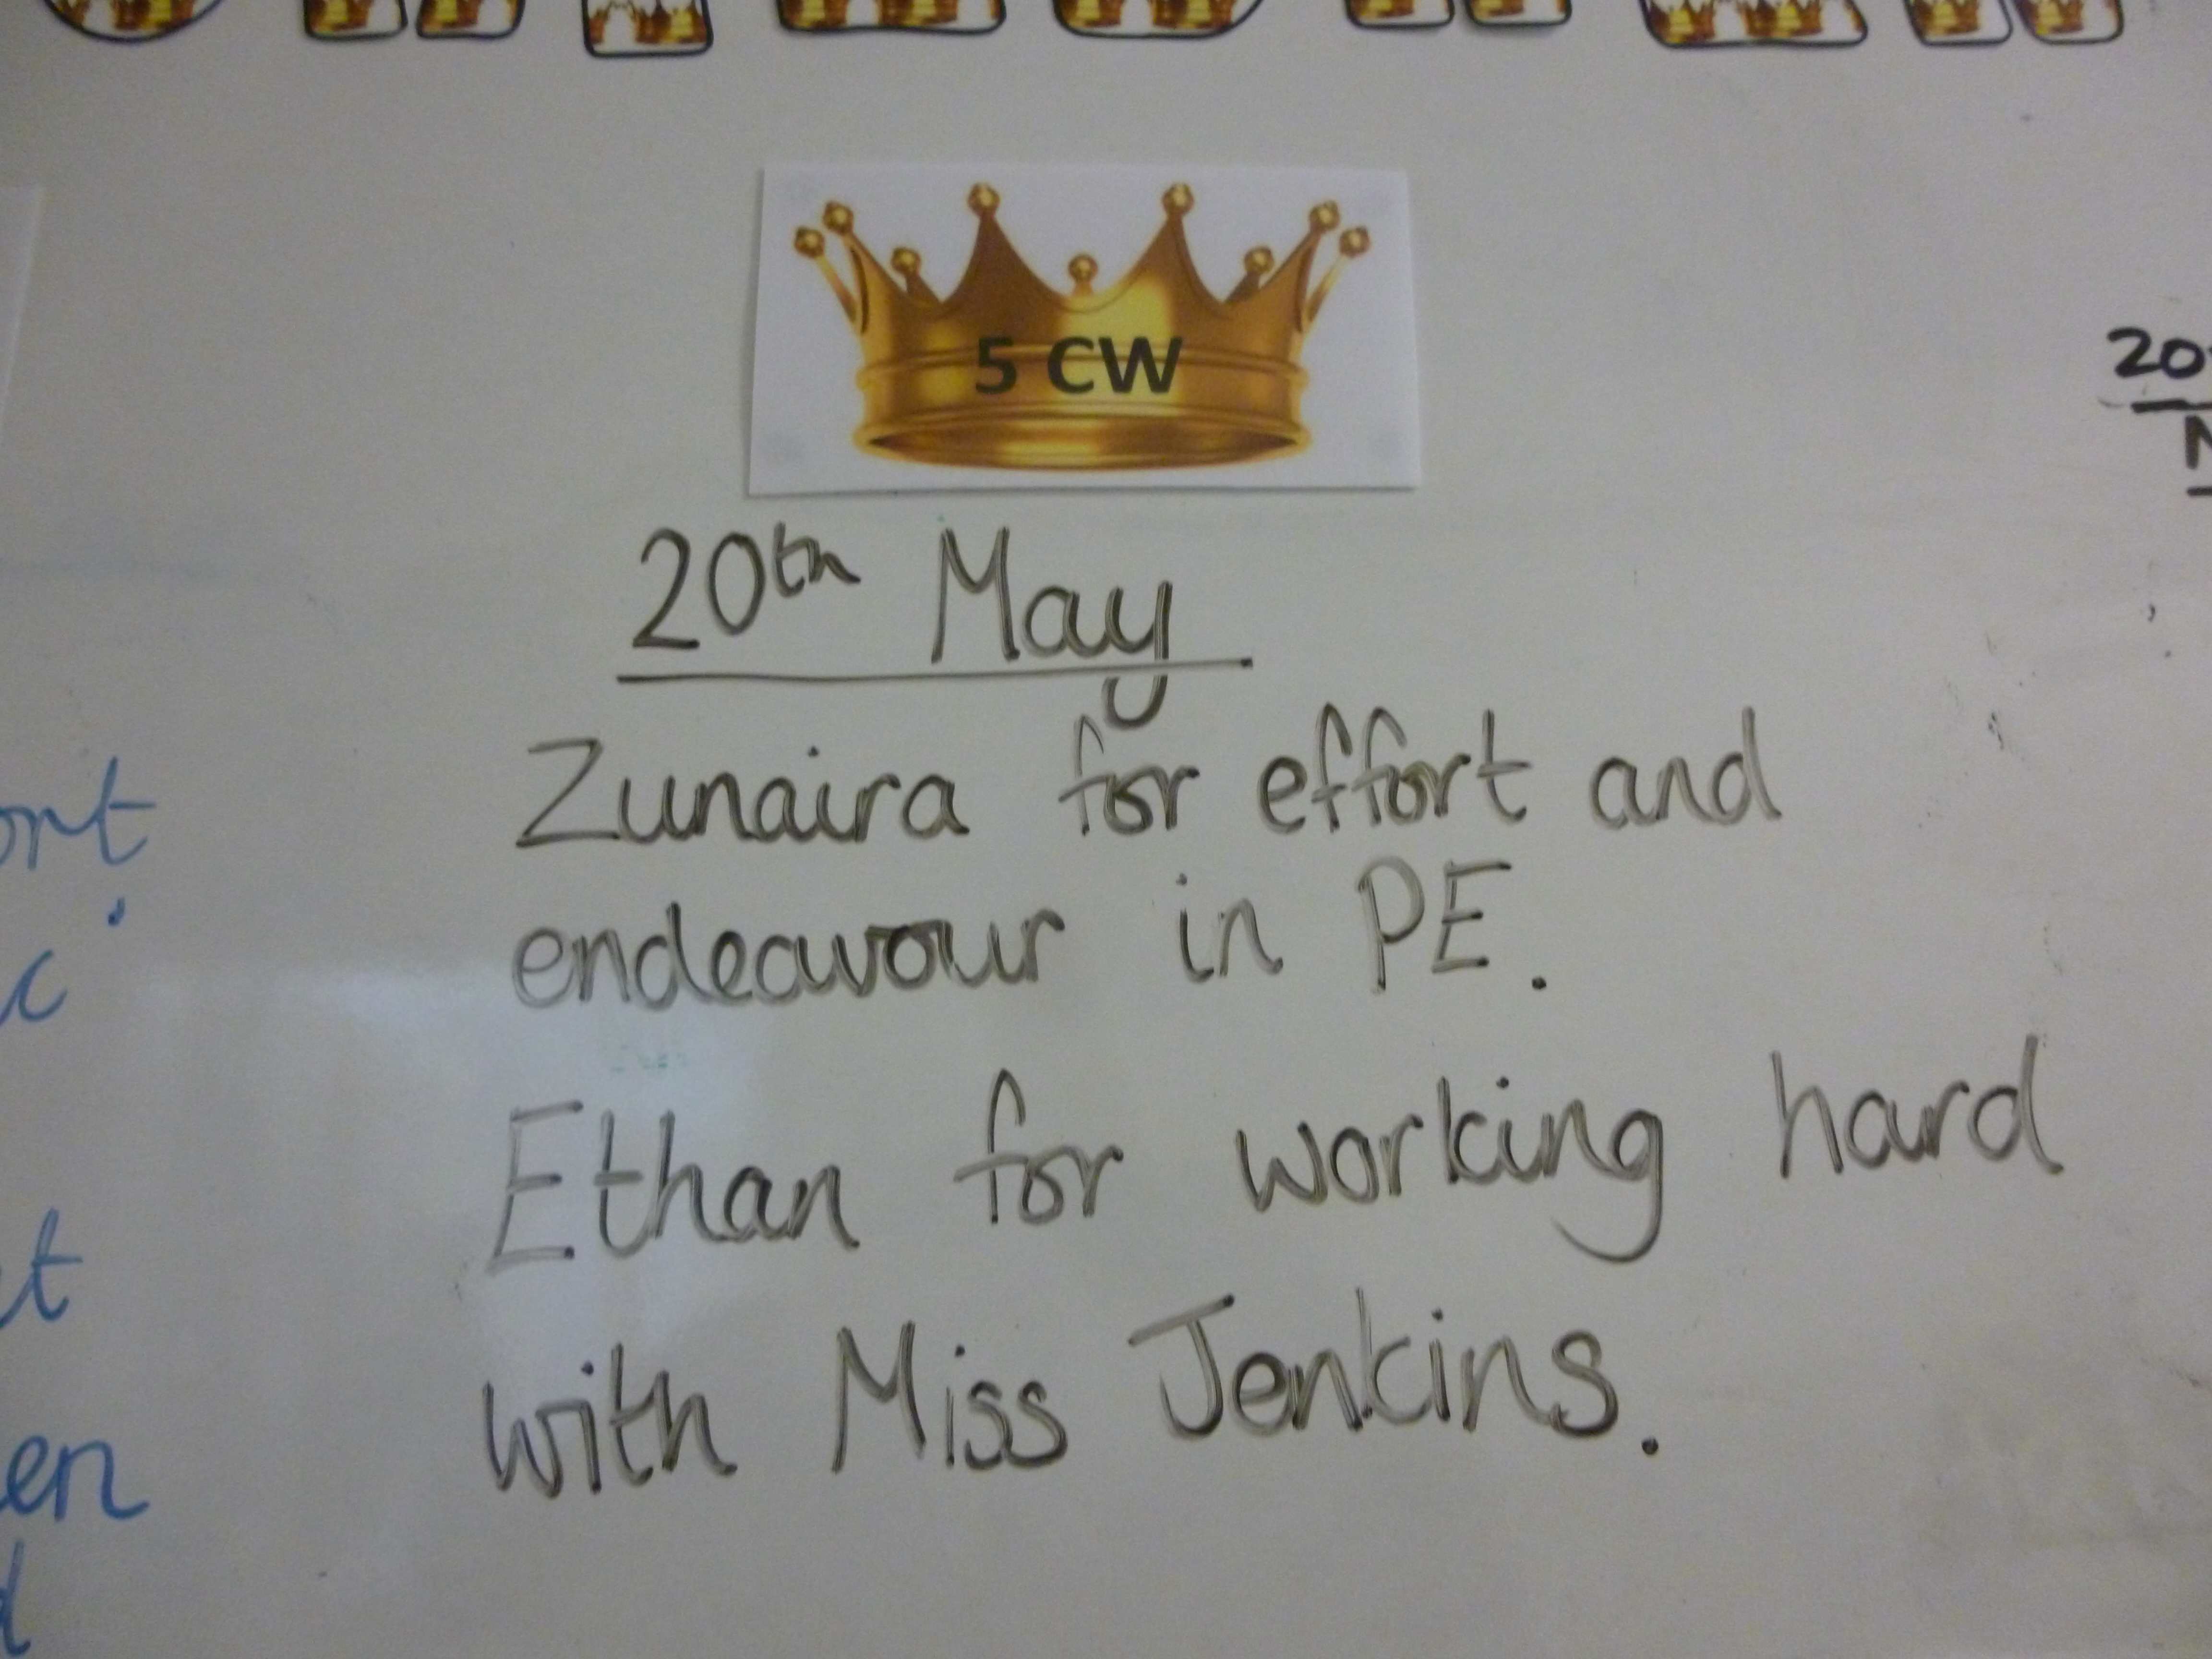 5 CW
20th May
Zunaira for effort and
endeavour in PE.
Ethan for working hard
with Miss Jenkins.